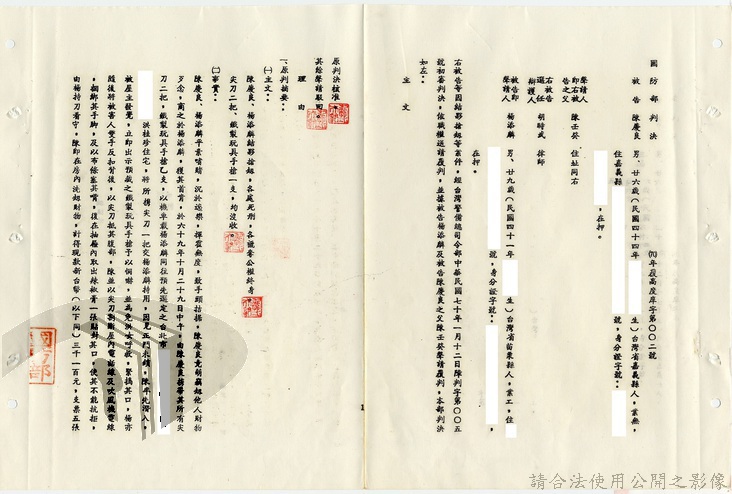 國防部判決
(70)年覆高度庠字第〇〇二號
被告陳慶良 男、廿六歲(民國四十四年 生)台灣省嘉義縣人,業無,
住嘉義縣 號,身分證字號:
,在押。
聲請人
即右被
告之父 陳壬癸 住址同右
右被告
選任
辯護人 胡時武 律師
被告即
聲請人 楊添麟 男、廿九歲(民國四十一年 生)台灣省苗栗縣人,業工,住
號,身分證字號:
在押。
右被告等因結夥搶劫等案件,經台灣警備總司令部中華民國七十年一月十二日陳判字第〇〇五
號初審判決,依職權逕請覆判,並據被告楊添麟及被告陳慶良之父陳壬癸聲請覆判,本部判決
如左:
主文
原判決核准。
其餘聲請駁回。
理由
一、原判摘要:
(一)主文:
陳慶良、楊添麟結夥搶劫,各處死刑,各褫奪公權終身。
尖刀二把、鐵製玩具手槍一支,均沒收。
(二)事實:
陳慶良、楊添麟平素嗜賭,沉於逸樂,揮霍無度,致手頭拮据,陳慶良竟萌竊劫他人財物
歹念,商之於楊添麟,獲其首肯,於六十九年十月二十九日中午,由陳慶良攜帶其所有尖
刀二把、鐵製玩具手槍乙支,以機車載楊添麟同往預先選定之台北市
洪桂珍住宅,將所攜尖刀一把交楊添麟持用,因見正門未鎖,陳即先潛入,
被屋主發覺,立即出示預藏之鐵製玩具手槍予以恫嚇,並為免洪女呼救,緊摀其口,楊亦
隨後將被害人雙手反扣背後,以尖刀抵其腹部,陳並以尖刀割斷屋內電話線及吹風機電線
,綑綁其手腳,及以布條塞其嘴,復在抽屜內取出辣椒膏一張貼封其口,使其不能抗拒,
由楊持刀看守,陳即在房內洗劫財物,計得現款新台幣(以下同)三千一百元,支票五張
1
國防部
請合法使用公開之影像